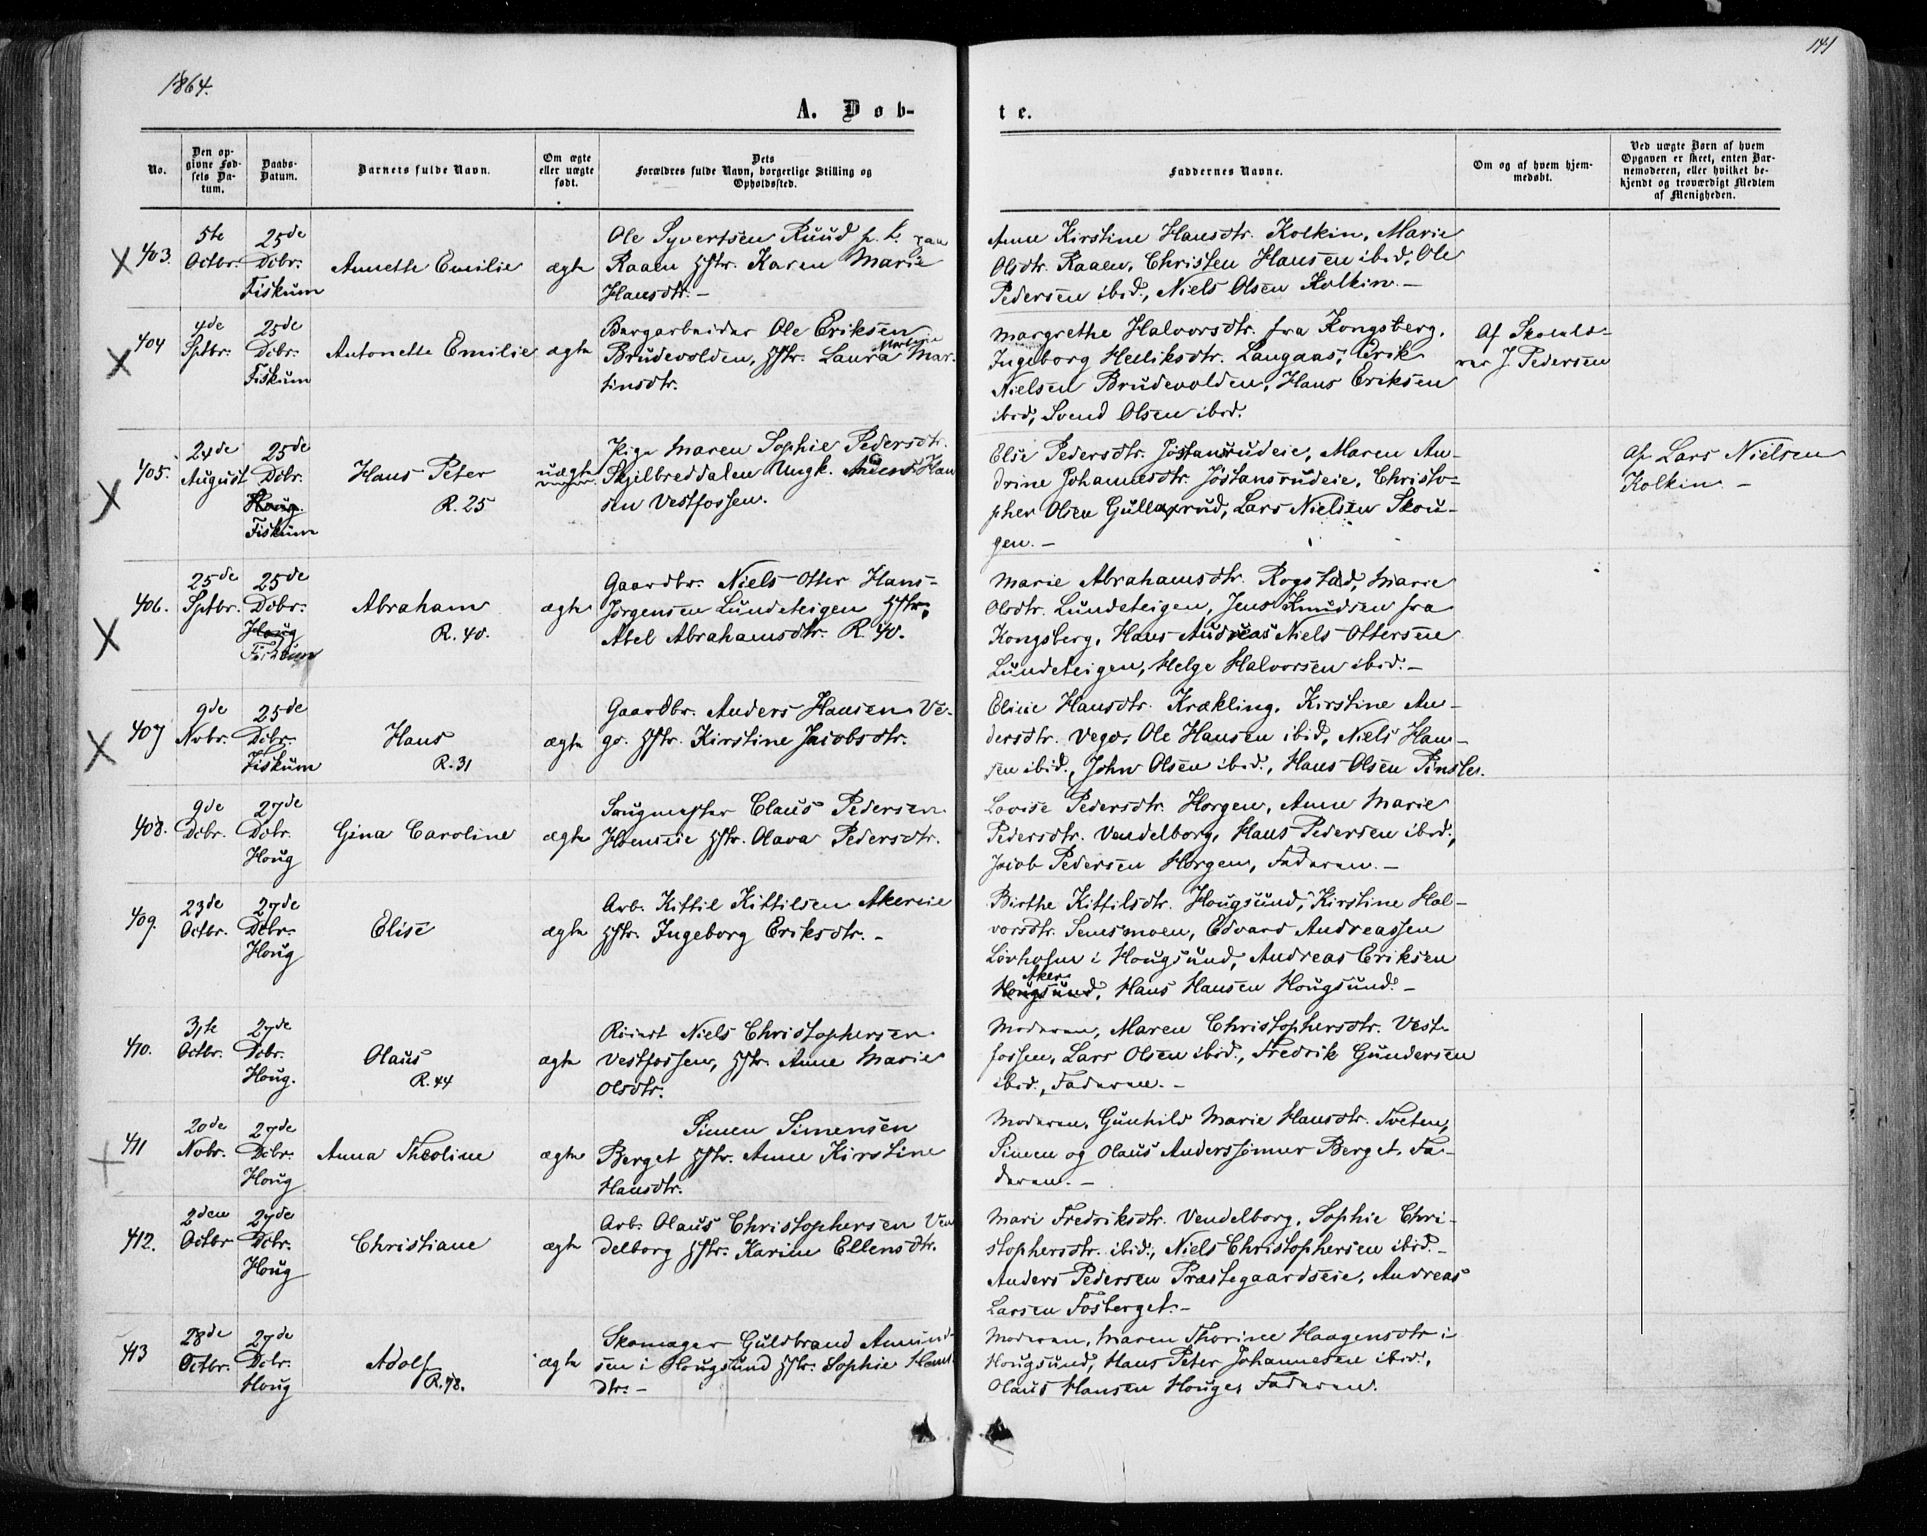 1864.
141
A. Døb-
te.
No.
Den op-
givne Fød-
sels Da-
tum.
Daabs-
Datum.
Barnets fulde Navn.
Om ægte
eller uægte
født.
Dets
Forældres fulde Navn, borgerlige Stilling og
Opholdssted.
Faddernes Navne.
Om og af hvem hjem-
medøbt.
Ved uægte Børn af hvem
Opgaven er skeet, enten Bar-
nemoderen, eller hvilket be-
kjendt og troværdigt Medlem
af Menigheden.
403.
5te
Octbr.
25de
Dcbr.
Fiskum
Annette Emilie
ægte
Ole Syvertsen Ruud p. t. paa
Raaen Hstr. Karen Marie
Hansdtr. -
Anne Kirstine Hansdtr. Kolkin, Marie
Olsdtr. Raaen, Christen Hansen ibid, Ole
Pedersen ibid., Niels Olsen Kolkin. -
404
4de
Sptbr.
25de
Dcbr.
Fiskum
Antonette Emilie
ægte
Bergarbeider Ole Eriksen
Brudevolden, Hstr. Laura Mar-
tinsdtr.
Margrethe Halvorsdtr. fra Kongsberg,
Ingeborg Helliksdtr. Langaas, Erik
Nielsen Brudevolden, Hans Eriksen
ibid, Svend Olsen ibid.
Af Skolelæ-
rer J Pedersen
405.
24de
August
25de
Dcbr.
Houg.
Fiskum
Hans Peter
R. 25
uægte
Pige Maren Sophie Pedersdtr.
Skjelbreddalen Ungk. Han
sen Vestfossen.
Else Pedersdtr. Jøstansrudeie, Maren An-
drine Johannesdtr. Jøstansrudeie, Christo-
pher Olsen Gullaxrud, Lars Nielsen Skou-
gen. -
Af Lars Nielsen
Kolkin. -
406.
25de
Sptbr.
25de
Dcbr.
Houg
Fiskum
Abraham
R. 40.
ægte
Gaardbr. Niels Otter Hans-
Jørgensen Lundeteigen Hstr.
Abel Abrahamsdtr. R. 40.
Marie Abrahamsdtr. Rogstad, Marie
Olsdtr. Lundeteigen, Jens Knudsen fra
Kongsberg, Hans Andreas Niels Ottersen
Lundeteigen, Helge Halvorsen ibid. -
407
9de
Nvbr.
25de
Dcbr.
Fiskum
Hans
R. 31
ægte
Gaardbr. Anders Hansen Ve-
go. Hstr. Kirstine Jacobsdtr.
Eline Hansdtr. Krækling, Kirstine An-
dersdtr. Vego, Ole Hansen ibid, Niels Han-
sen ibid., John Olsen ibid., Hans Olsen Pinsle.
408.
9de
Dcbr.
27de
Dcbr.
Houg
Gina Caroline
ægte
Saugmester Claus Pedersen
Hoenseie Hstr. Olava Pedersdtr.
Lovise Pedersdtr. Horgen, Anne Marie
Pedersdtr. Vendelborg, Hans Pedersen ibid.,
Jacob Pedersen Horgen, Faderen. -
409.
23de
Octbr.
27de
Dcbr.
Houg
Elise
ægte
Arb. Kittil Kittilsen Akereie
Hstr. Ingeborg Eriksdtr. -
Birthe Kittilsdtr. Hougsund, Kirstine Hal-
vorsdtr. Semsmoen, Edvard Andreassen
Lövhosne i Hougsund, Andreas Eriksen
Aker
Hougsund, Hans Hansen Hougsund. -
410.
31te
Octbr.
27de
Dcbr.
Houg.
Olaus
R. 44
ægte
Niels Christophersen
Vestfossen, Hstr. Anne Marie
Olsdtr.
Moderen, Maren Christophersdtr. Vest-
fossen, Lars Olsen ibid., Fredrik Gundersen
ibid., Faderen. -
411
20de
Nvbr.
27de
Dcbr.
Houg
Anna Theoline
ægte
Simen Simensen
Berget Hstr. Anne Kirstine
Hansdtr.
Moderen, Gunhild Marie Hansdtr. Tveten,
Simen og Olaus Anderssønner Berget, Fa-
deren. -
412.
2den
Octbr
27de
Dcbr.
Houg
Christiane
ægte
Arb. Olaus Christophersen Ven
delborg Hstr. Karine Ellensdtr.
Mari Fredriksdtr. Vendelborg, Sophie Chri-
stophersdtr. ibid., Niels Christophersen ibid. -
Anders Pedersen Præstegaardseie, Andreas
Larsen Fosberget. -
413
28de
Octbr.
27de
Dcbr.
Houg
Adolf
R. 78.
ægte
Skomager Guldbrand Amund-
sen i Hougsund Hstr. Sophie Hans-
dtr. -
Moderen, Maren Thorine Haagensdtr i
Hougsund, Hans Peter Johannesen ibid.,
Olaus Hansen Houger, Faderen.